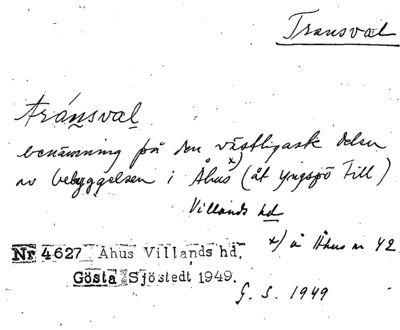 Transval
tránsval
benämning på den västligaste delen
av bebyggelsen i Åhus x) (åt Yngsjö till)
Villands hd
x) å Åhus nr 42.
Nr 4627 Åhus Villands hd.
Gösta Sjöstedt 1949.
G. S. 1949